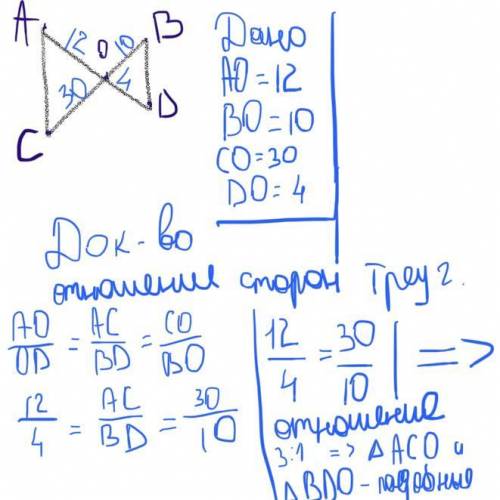 A 12 O 10 B
30 4
C D
Дано
AO = 12
BO = 10
CO = 30
DO = 4
Док-во
отношение сторон треуг.
AO/OD = AC/BD = CO/BO
12/4 = AC/BD = 30/10
12/4 = 30/10 =>
отношение
3:1 => △ACO и
△BDO - подобные